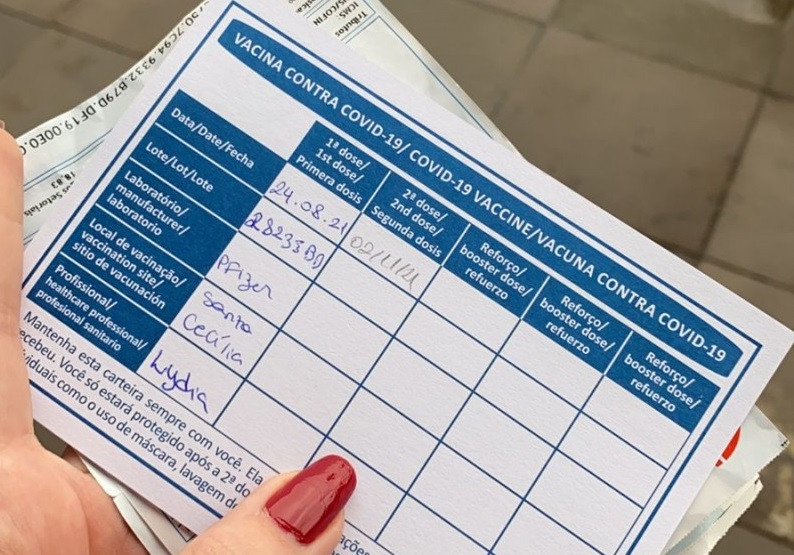 ICMS:
Tributos
730.7C94.9332.B79D.DF19.00E0.
VACINA CONTRA COVID-19/ COVID-19 VACCINE/VACUNA CONTRA COVID-19
1ª dose/
1st dose/
Primera dosis
2ª dose/
2nd dose/
Segunda dosis
Reforço/
booster dose/
refuerzo
Reforço/
booster dose/
refuerzo
Reforço/
booster dose/
refuerzo
Data/Date/Fecha
24.08.21
02/11/21
Lote/Lot/Lote
Laboratório/
manufacturer/
laboratorio
Pfizer
Local de vacinação/
vaccination site/
sitio de vacunación
Santa
Cecília
Profissional/
healthcare professional/
profesional sanitario
Lydia
Mantenha esta carteira sempre com você. Ela
recebeu. Você só estará protegido após a 2ª do
viduais como o uso de máscara, lavagem d